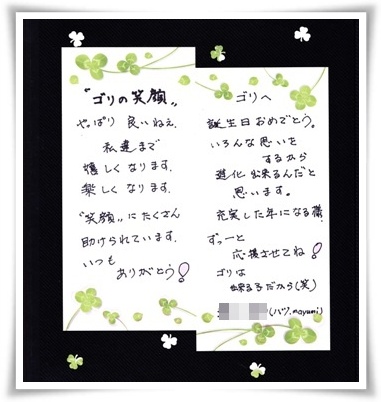 "ゴリの笑顔"
やっぱり 良いねぇ.
私達まで
嬉しく なります.
楽しく なります.
"笑顔"にたくさん
助けられています.
いつも
ありがとう!
ゴリへ
誕生日おめでとう。
いろんな思いを
するから
進化出来るんだと
思います。
充実した年になる様
ずっーと
応援させてね!
ゴリな
出来るるだから(笑)
(ハヅ.mayumi)